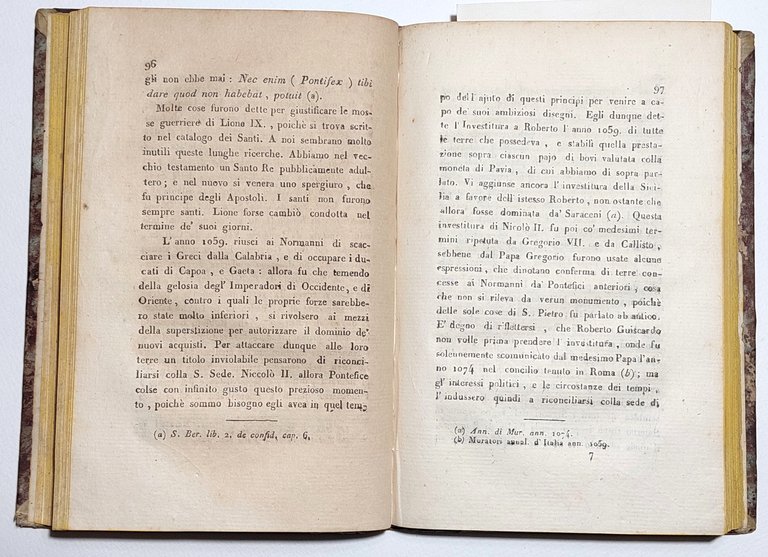 96
gli non ebbe mai : Nec enim ( Pontifex ) tibi
dare quod non habebat , potuit (a).
Molte cose furono dette per giustificare le mos-
se guerriere di Lione IX. , poichè si trova scrit-
to nel catalogo dei Santi. A noi sembrano molto
inutili queste lunghe ricerche. Abbiamo nel vec-
chio testamento un Santo Re pubblicamente adul-
tero ; e nel nuovo si venera uno spergiuro , che
fu principe degli Apostoli. I santi non furono
sempre santi. Lione forse cambiò condotta nel
termine de' suoi giorni.
L'anno 1059. riuscì ai Normanni di scac-
ciare i Greci dalla Calabria , e di occupare i du-
cati di Capoa , e Gaeta : allora fu che temendo
della gelosia degl' Imperadori di Occidente, e di
Oriente, contro i quali le proprie forze sarebbe-
ro state molto inferiori , si rivolsero ai mezzi
della superstizione per autorizzare il dominio de'
nuovi acquisti. Per attaccare dunque alle loro
terre un titolo inviolabile pensarono di riconci-
liarsi colla S. Sede. Niccolò II. allora Pontefice
colse con infinito gusto questo prezioso momen-
to , poichè sommo bisogno egli avea in quel tem-
(a) S. Ber. lib. 2. de confid, cap. 6,
97
po dell'ajuto di questi principi per venire a ca-
po de suoi ambiziosi disegni. Egli dunque det-
te l'Investitura a Roberto l'anno 1059. di tutte
le terre che possedeva , e stabilì quella presta-
zione sopra ciascun pajo di bovi valutata colla
moneta di Pavia , di cui abbiamo di sopra par-
lato. Vi aggiunse ancora l'investitura della Sici-
lia a favore dell'istesso Roberto , non ostante che
allora fosse dominata da' Saraceni (a). Questa
investitura di Nicolò II. fu poi co' medesimi ter-
mini ripetuta da Gregorio VII. e da Callisto ,
sebbene dal Papa Gregorio furono usate alcune
espressioni , che dinotano conferma di terre con-
cesse ai Normanni da' Pontefici anteriori , cosa
che non si rileva da verun monumento , poichè
delle sole cose di S. Pietro fu parlato ab antico.
E' degno di riflettersi , che Roberto Guiscardo
non volle prima prendere l'investitura , onde fu
solennemente scomunicato dal medesimo Papa l'an-
no 1074 nel concilio tenuto in Roma (b) ; ma
gl' interessi politici , e le circostanze dei tempi ,
l'indussero quindi a riconciliarsi colla sede di
(a) Ann. di Mur. ann. 1074.
(b) Muratori annal. d'Italia ann. 1059.
7